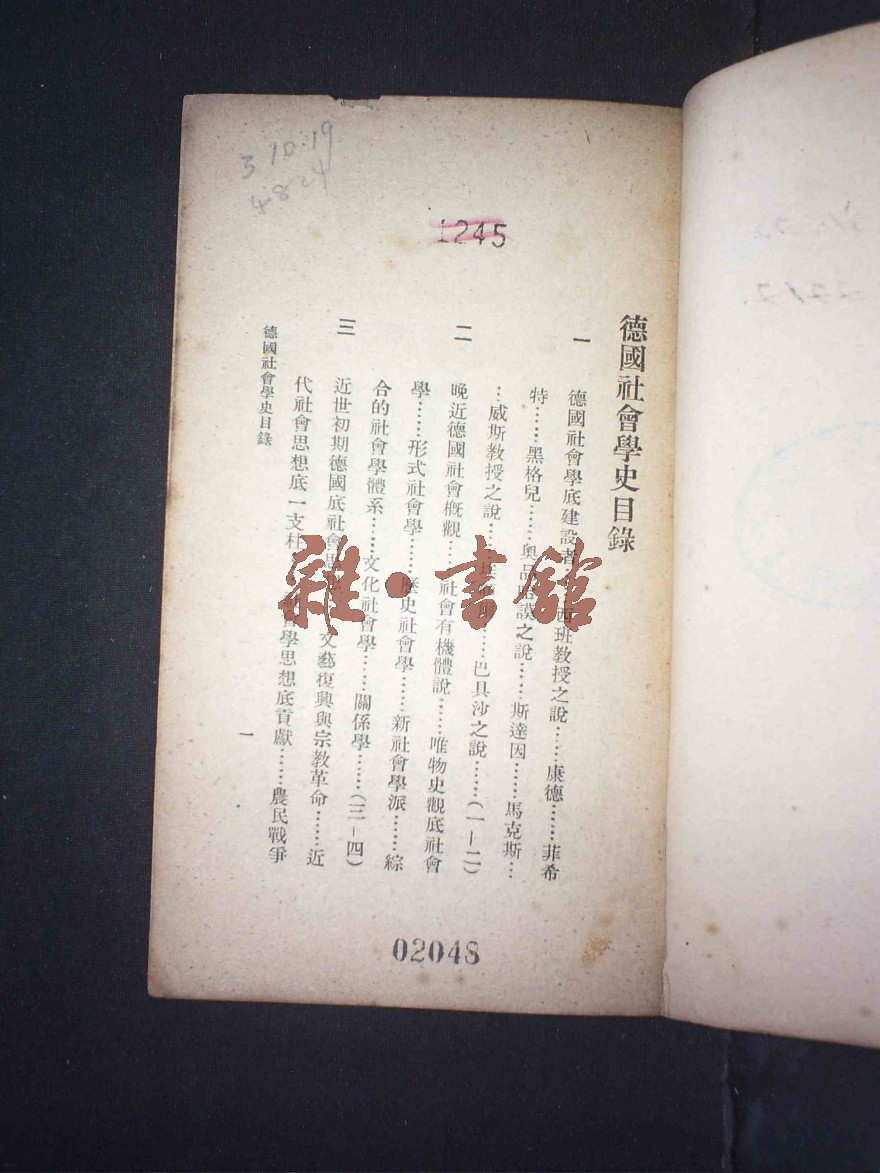 3 10.19
4824
1245
德國社會學史目錄
一
德國社會學底建設者 西班教授之說……康德……菲希
特……黑格兒……奧品 謨之說……斯達因……馬克斯…
…威斯教授之說…… ……巴具沙之說……(一—二)
二
晚近德國社會概觀……社會有機體說……唯物史觀底社會
學……形式社會學……歷史社會學……新社會學派……綜
合的社會學體系……文化社會學……關係學……(三—四)
三
近世初期德國底社會思 文藝復興與宗教革命……近
代社會思想底一支柱 會學思想底貢獻……農民戰爭
德國社會學史目錄
一
02048
雜·書館